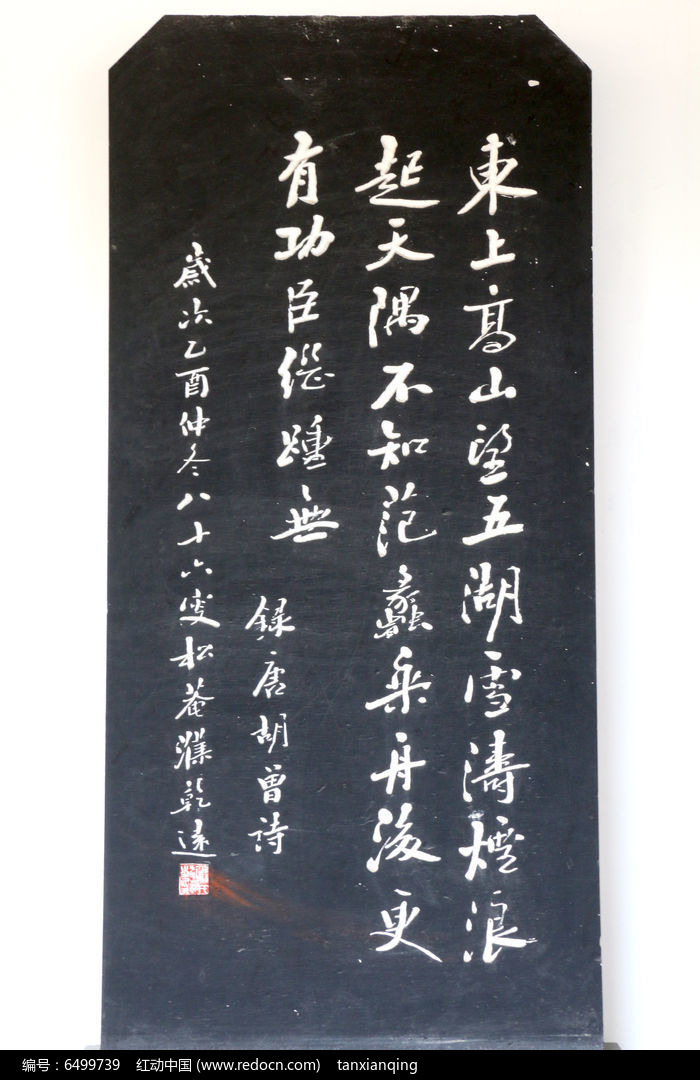 東上高山望五湖雪濤煙浪
起天隅不知范蠡乘舟後更
有功臣繼踵無
錄唐胡曾詩
歲次乙酉仲冬八十六叟松菴濮乾遠
编号：6499739 红动中国 (www.redocn.com) tanxianqing